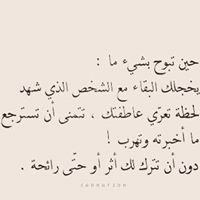 حين تبوح بشيء ما :
يخجلك البقاء مع الشخص الذي شهد
لحظة تعرّي عاطفتك ، تتمنى أن تسترجع
ما أخبرته وتهرب !
دون أن تترك لك أثر أو حتّى رائحة .